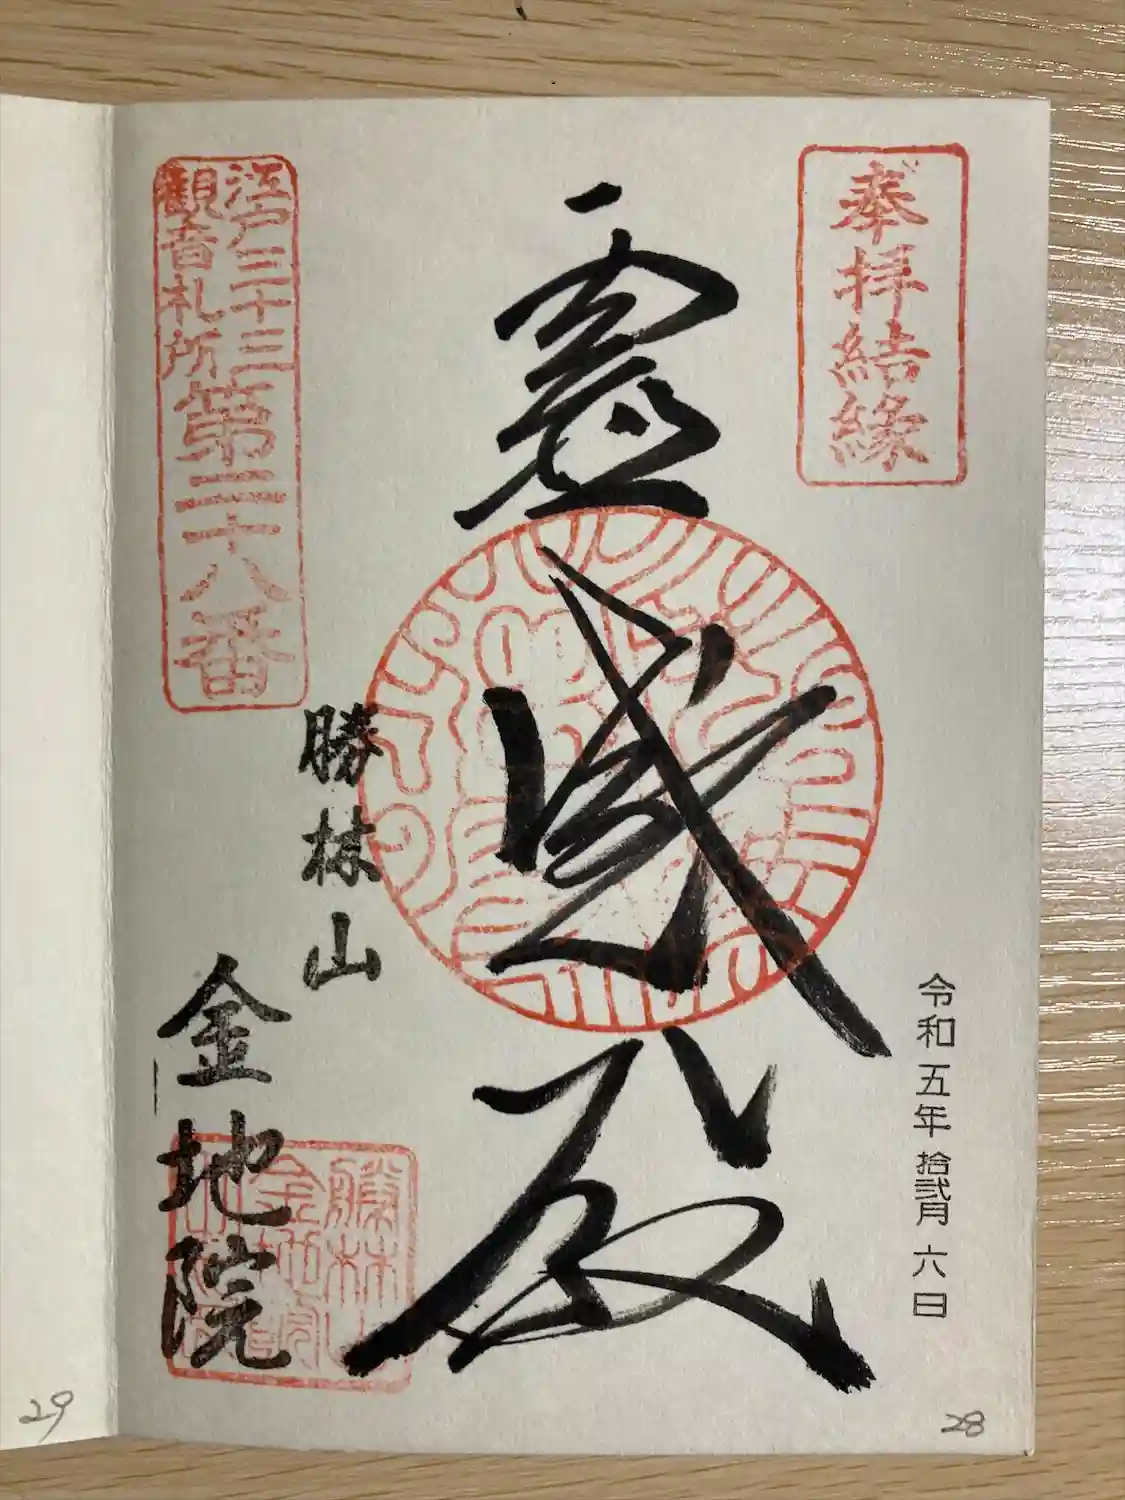 奉拝結縁
令和五年拾弐月六日
霊感殿
江戸三十三
観音札所
第二十八番
勝林山
金地院
28
29